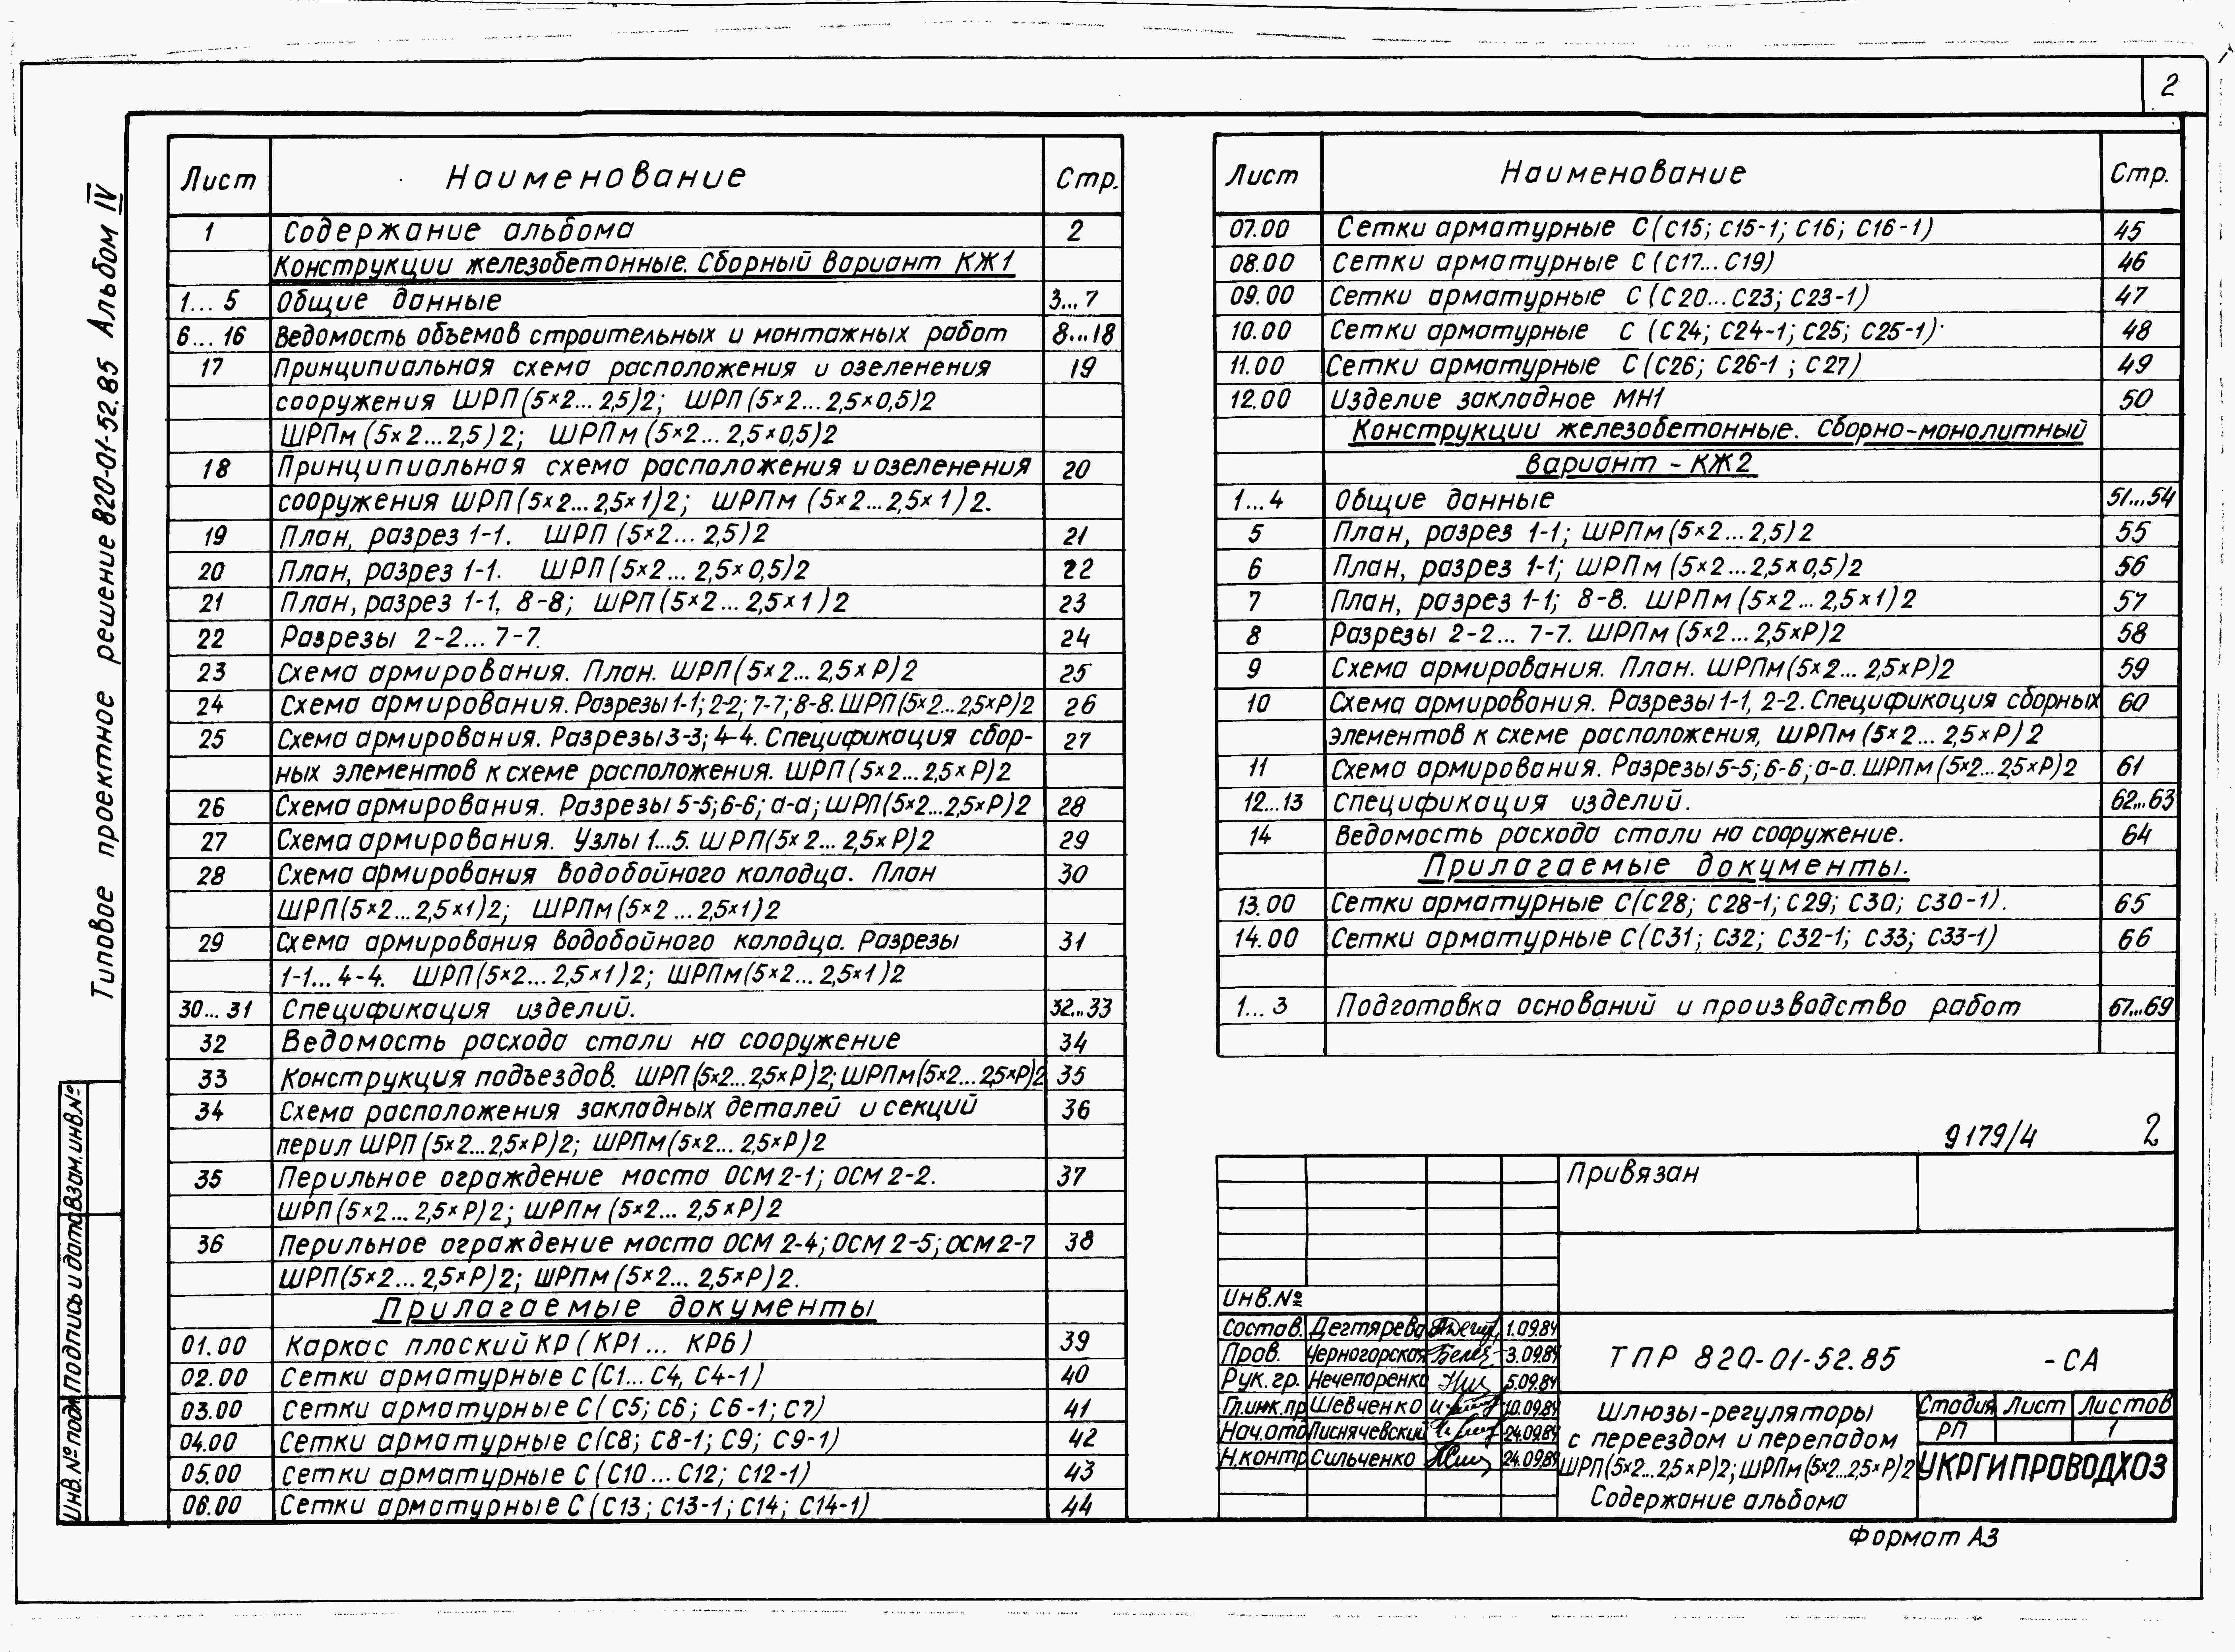 2
Типовое проектное решение 820-01-52.85 Альбом IV
Лист Наименование Стр.
1 Содержание альбома 2
Конструкции железобетонные. Сборный вариант КЖ1
1... 5 Общие данные 3...7
6... 16 Ведомость объемов строительных и монтажных работ 8...18
17 Принципиальная схема расположения и озеленения 19
сооружения ШРП(5×2...2,5)2; ШРП(5×2...2,5×0,5)2
ШРПм(5×2...2,5)2; ШРПм(5×2...2,5×0,5)2
18 Принципиальная схема расположения и озеленения 20
сооружения ШРП(5×2...2,5×1)2; ШРПм (5×2...2,5×1)2.
19 План, разрез 1-1. ШРП (5×2...2,5)2 21
20 План, разрез 1-1. ШРП(5×2...2,5×0,5)2 22
21 План, разрез 1-1, 8-8; ШРП(5×2...2,5×1)2 23
22 Разрезы 2-2...7-7. 24
23 Схема армирования. План. ШРП(5×2...2,5×Р)2 25
24 Схема армирования. Разрезы 1-1; 2-2; 7-7; 8-8. ШРП(5×2...2,5×Р)2 26
25 Схема армирования. Разрезы 3-3; 4-4. Спецификация сбор- 27
ных элементов к схеме расположения. ШРП(5×2...2,5×Р)2
26 Схема армирования. Разрезы 5-5; 6-6; а-а; ШРП(5×2...2,5×Р)2 28
27 Схема армирования. Узлы 1...5. ШРП(5×2...2,5×Р)2 29
28 Схема армирования водобойного колодца. План 30
ШРП(5×2...2,5×1)2; ШРПм(5×2...2,5×1)2
29 Схема армирования водобойного колодца. Разрезы 31
1-1...4-4. ШРП(5×2...2,5×1)2; ШРПм(5×2...2,5×1)2
30...31 Спецификация изделий. 32...33
32 Ведомость расхода стали на сооружение 34
33 Конструкция подъездов. ШРП(5×2...2,5×Р)2; ШРПм(5×2...2,5×Р)2 35
34 Схема расположения закладных деталей и секций 36
перил ШРП(5×2...2,5×Р)2; ШРПм(5×2...2,5×Р)2
35 Перильное ограждение моста ОСМ 2-1; ОСМ 2-2. 37
ШРП(5×2...2,5×Р)2; ШРПм(5×2...2,5×Р)2
36 Перильное ограждение моста ОСМ 2-4; ОСМ 2-5; ОСМ 2-7 38
ШРП(5×2...2,5×Р)2; ШРПм(5×2...2,5×Р)2.
Прилагаемые документы
01.00 Каркас плоский КР (КР1... КР6) 39
02.00 Сетки арматурные С(С1...С4, С4-1) 40
03.00 Сетки арматурные С(С5; С6; С6-1; С7) 41
04.00 Сетки арматурные С(С8; С8-1; С9; С9-1) 42
05.00 Сетки арматурные С (С10...С12; С12-1) 43
06.00 Сетки арматурные С (С13; С13-1; С14; С14-1) 44
Лист Наименование Стр.
07.00 Сетки арматурные С(С15; С15-1; С16; С16-1) 45
08.00 Сетки арматурные С (С17...С19) 46
09.00 Сетки арматурные С (С20...С23; С23-1) 47
10.00 Сетки арматурные С (С24; С24-1; С25; С25-1) 48
11.00 Сетки арматурные С (С26; С26-1; С27) 49
12.00 Изделие закладное МН1 50
Конструкции железобетонные. Сборно-монолитный
вариант - КЖ2
1...4 Общие данные 51...54
5 План, разрез 1-1; ШРПм(5×2...2,5)2 55
6 План, разрез 1-1; ШРПм(5×2...2,5×0,5)2 56
7 План, разрез 1-1; 8-8. ШРПм(5×2...2,5×1)2 57
8 Разрезы 2-2...7-7. ШРПм(5×2...2,5×Р)2 58
9 Схема армирования. План. ШРПм(5×2...2,5×Р)2 59
10 Схема армирования. Разрезы 1-1, 2-2. Спецификация сборных 60
элементов к схеме расположения, ШРПм(5×2...2,5×Р)2
11 Схема армирования. Разрезы 5-5; 6-6; а-а. ШРПм(5×2...2,5×Р)2 61
12...13 Спецификация изделий. 62...63
14 Ведомость расхода стали на сооружение. 64
Прилагаемые документы.
13.00 Сетки арматурные С(С28; С28-1; С29; С30; С30-1). 65
14.00 Сетки арматурные С(С31; С32; С32-1; С33; С33-1) 66
1...3 Подготовка оснований и производство работ 67...69
9179/4 2
Привязан
Инв.№
Состав. Дегтярева 1.09.84
Пров. Черногорская 3.09.84
Рук.гр. Нечепоренко 5.09.84
Гл.инж.пр. Шевченко 10.09.84
Нач.отд. Лиснячевский 24.09.84
Н.контр Сильченко 24.09.84
ТПР 820-01-52.85 -СА
Шлюзы-регуляторы
с переездом и перепадом
ШРП(5×2...2,5×Р)2; ШРПм(5×2...2,5×Р)2
Содержание альбома
Стадия Лист Листов
РП 1
УКРГИПРОВОДХОЗ
Формат А3
Инв.№ подл. Подпись и дата Взам.инв.№